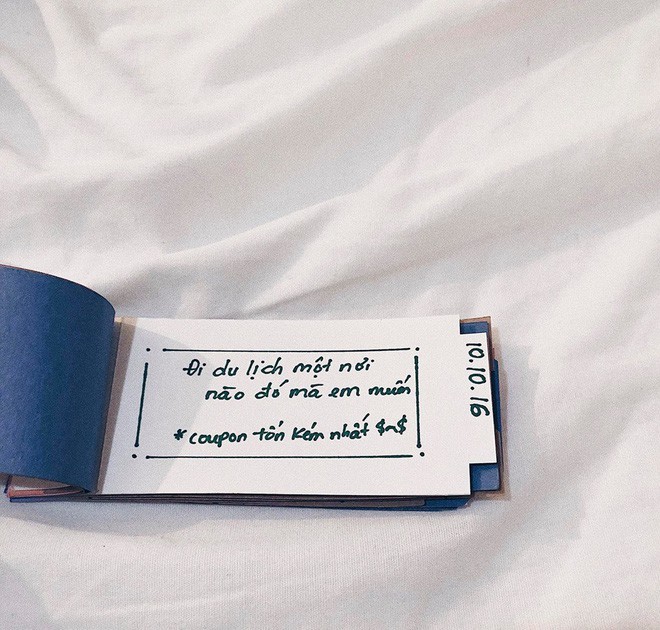 Đi du lịch một nơi
nào đó mà em muốn
*coupon tốn kém nhất $~$
10.10.16